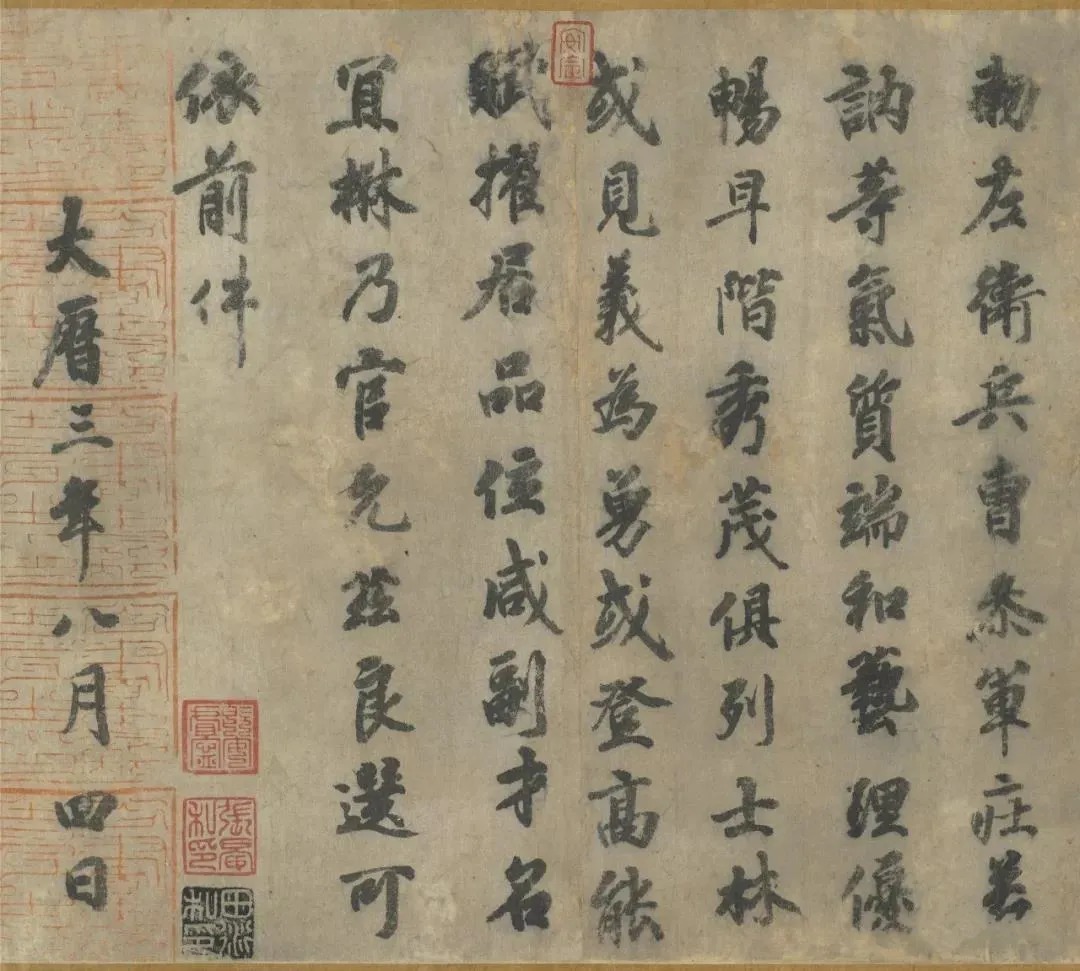 勑左衛兵曹叅軍庄若
訥等氣質端和藝理優
暢早階秀茂俱列士林
或見義為勇或登高能
賦擢居品位咸副才名
冝楙乃官允茲良選可
依前件
大曆三年八月四日